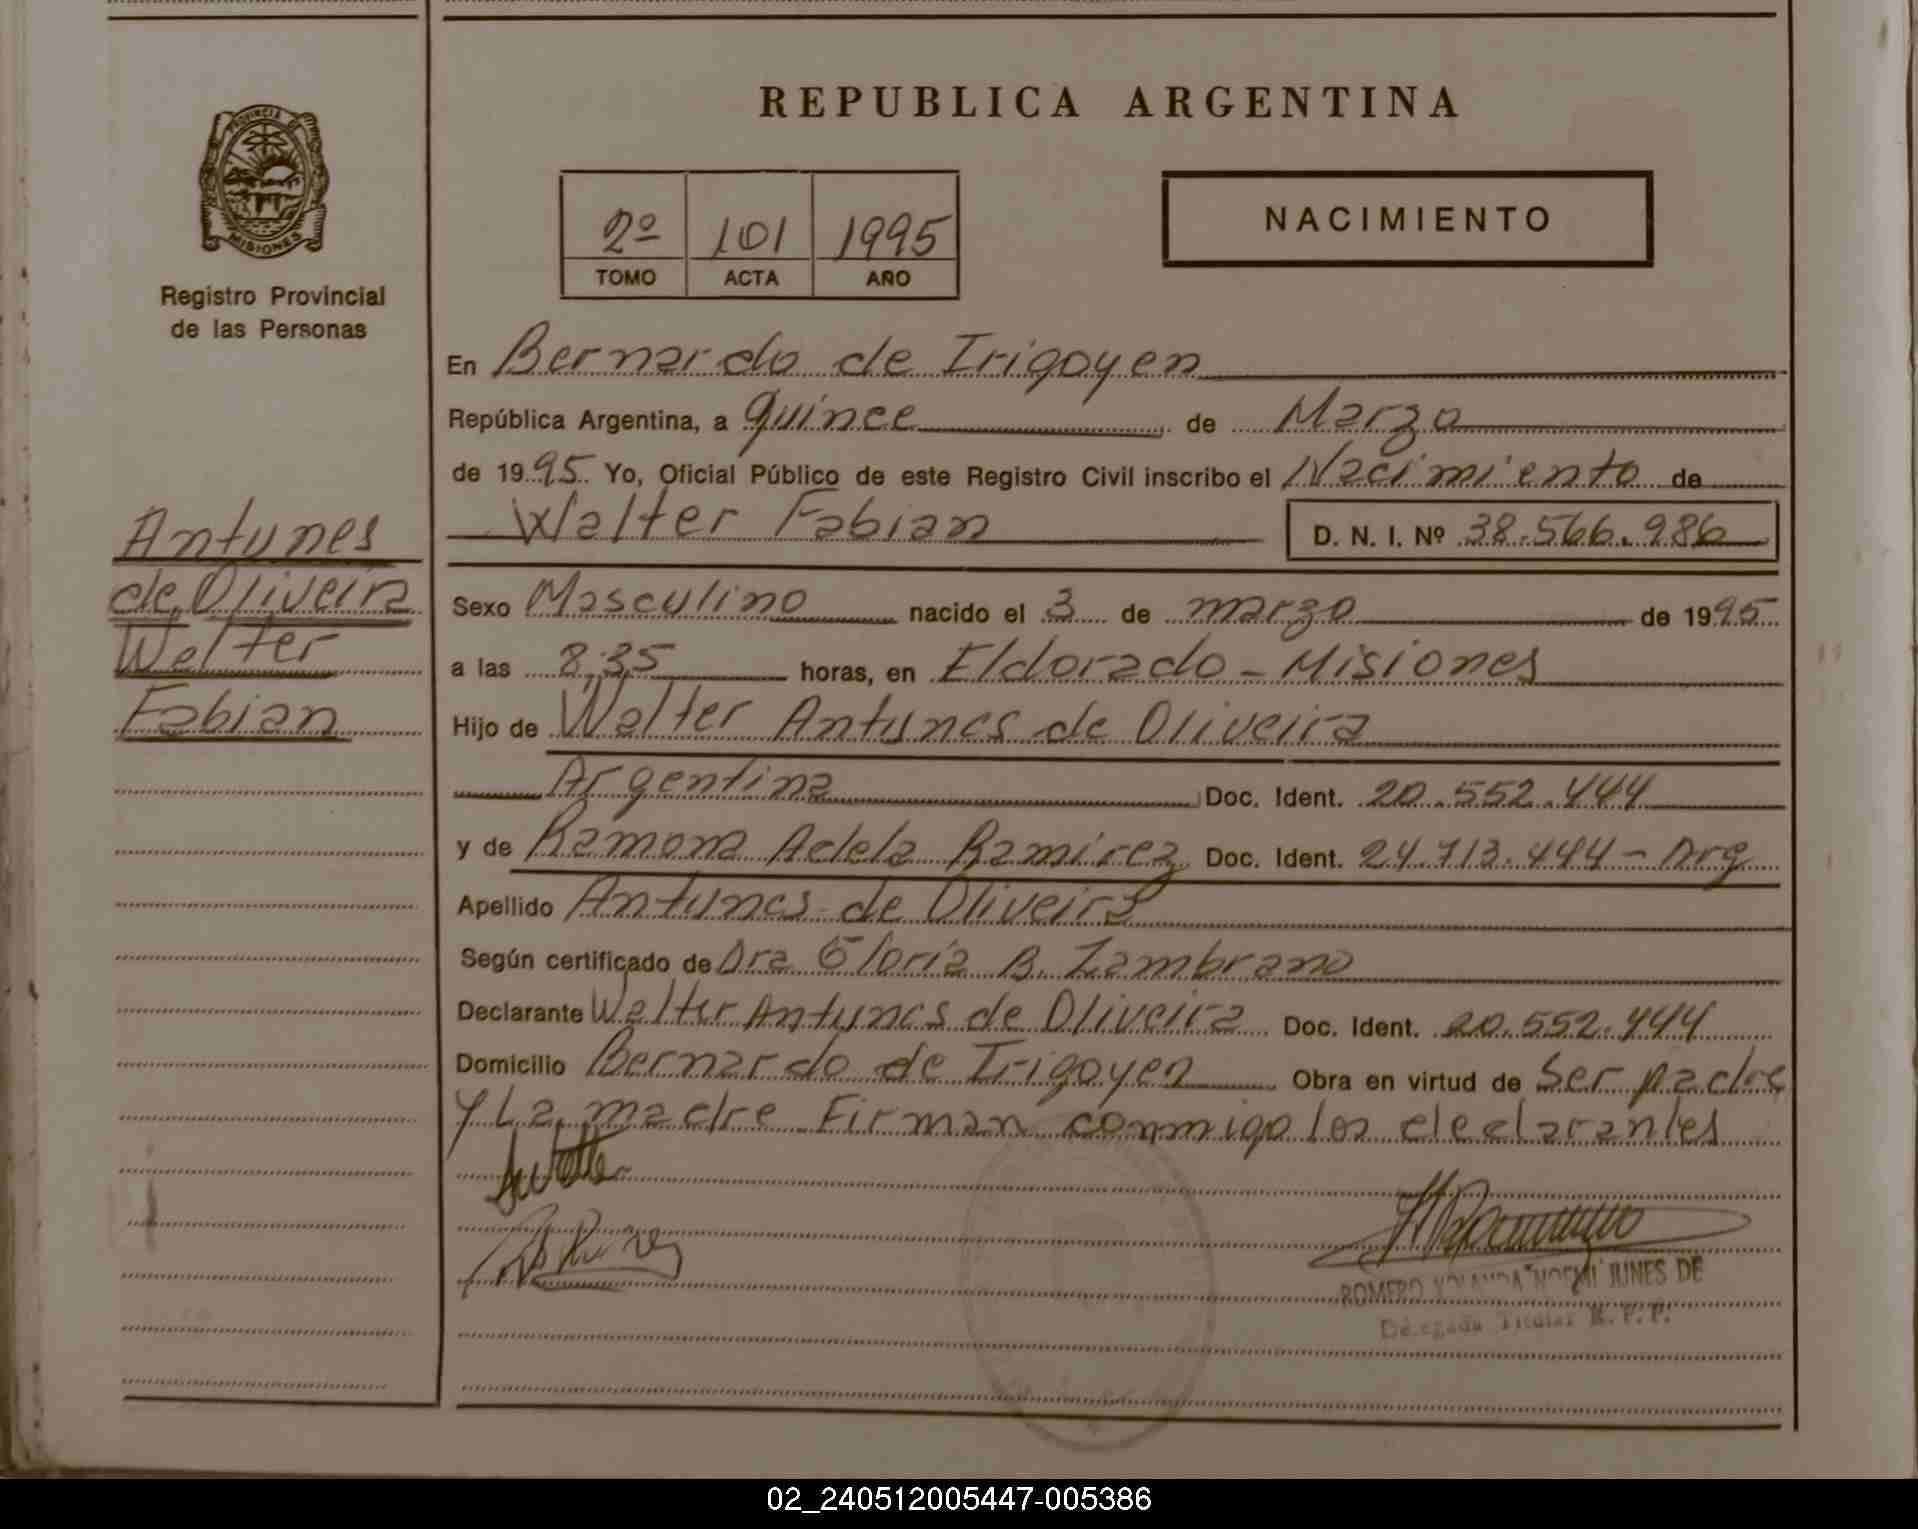 REPUBLICA ARGENTINA
PROVINCIA DE
MISIONES
Registro Provincial
de las Personas
2º 101 1995
TOMO ACTA AÑO
NACIMIENTO
Antunes
de Oliveira
Walter
Fabian
En Bernardo de Irigoyen
República Argentina, a quince de Marzo
de 1995 Yo, Oficial Público de este Registro Civil inscribo el Nacimiento de
Walter Fabian D. N. I. Nº 38.566.986
Sexo Masculino nacido el 3 de marzo de 1995
a las 8,35 horas, en Eldorado - Misiones
Hijo de Walter Antunes de Oliveira
Argentina Doc. Ident. 20.552.444
y de Ramona Adela Ramirez Doc. Ident. 24.713.444 - Arg
Apellido Antunes de Oliveira
Según certificado de Dra Gloria B. Zambrano
Declarante Walter Antunes de Oliveira Doc. Ident. 20.552.444
Domicilio Bernardo de Irigoyen Obra en virtud de Ser padre
y La madre Firman conmigo los declarantes
ROMERO YOLANDA NOEMI JUNES DE
Delegada Titular R. P. P.
02_240512005447-005386